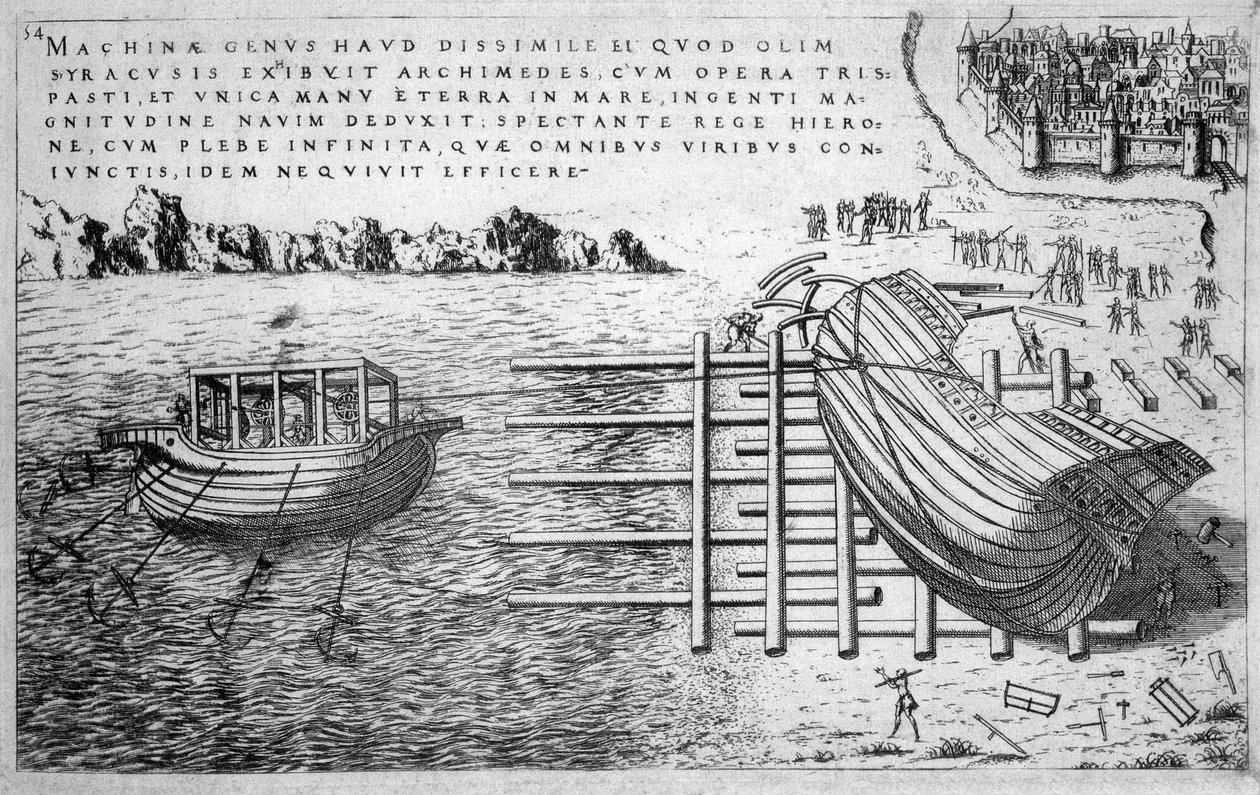 54
MACHINÆ GENVS HAVD DISSIMILE EI QVOD OLIM
SYRACVSIS EXHIBVIT ARCHIMEDES, CVM OPERA TRIS=
PASTI, ET VNICA MANV E TERRA IN MARE, INGENTI MA=
GNITVDINE NAVIM DEDVXIT: SPECTANTE REGE HIERO=
NE, CVM PLEBE INFINITA, QVÆ OMNIBVS VIRIBVS CON=
IVNCTIS, IDEM NEQVIVIT EFFICERE-